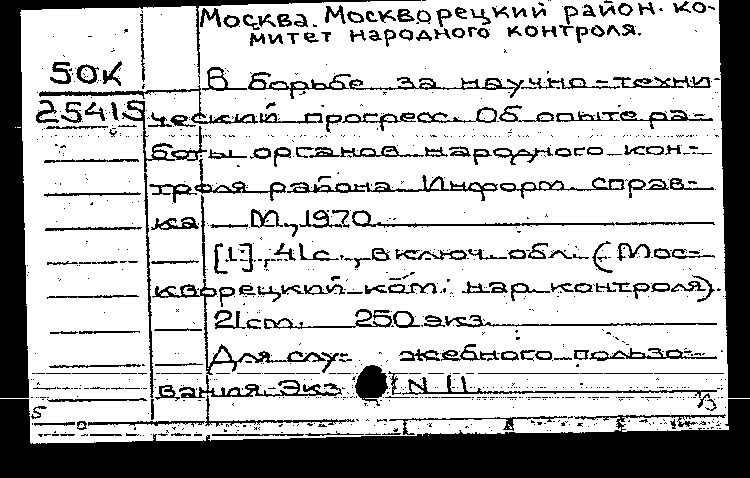 Москва. Москворецкий район. ко-
митет народного контроля.
50к
25415
В борьбе за научно-техни-
ческий прогресс. Об опыте ра-
боты органов народного кон-
троля района. Информ. справ-
ка М., 1970.
[1], 41с., включ. обл. (Мос-
кворецкий ком. нар. контроля).
21cm. 250 экз.
Для слу- жебного пользо-
вания. Экз N 11.